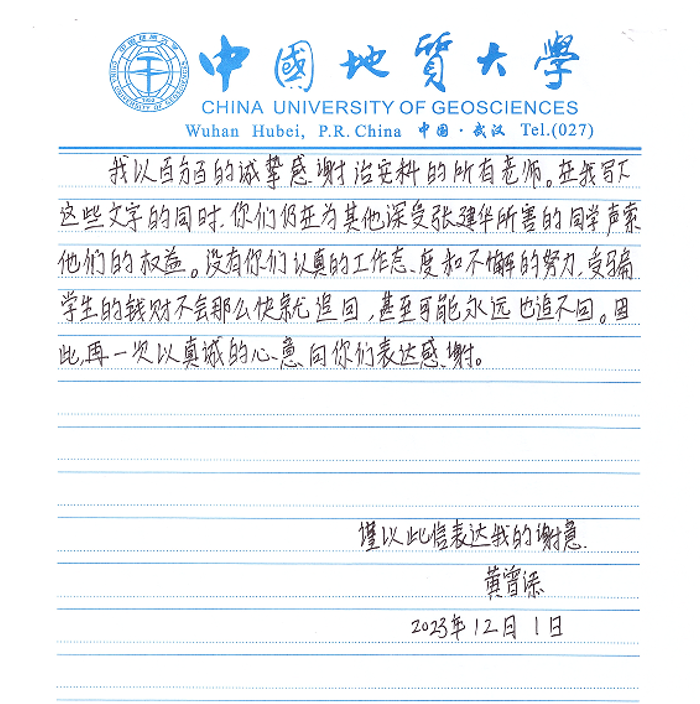 中國地質大學
CHINA UNIVERSITY OF GEOSCIENCES
Wuhan Hubei, P.R. China 中国·武汉 Tel.(027)
我以百分百的诚挚感谢治安科的所有老师。在我写下
这些文字的同时,你们仍在为其他深受张建华所害的同学声索
他们的权益。没有你们认真的工作态度和不懈的努力,受骗
学生的钱财不会那么快就追回,甚至可能永远也追不回。因
此,再一次以真诚的心意向你们表达感谢。
谨以此信表达我的谢意.
黄曾添
2023年12月1日